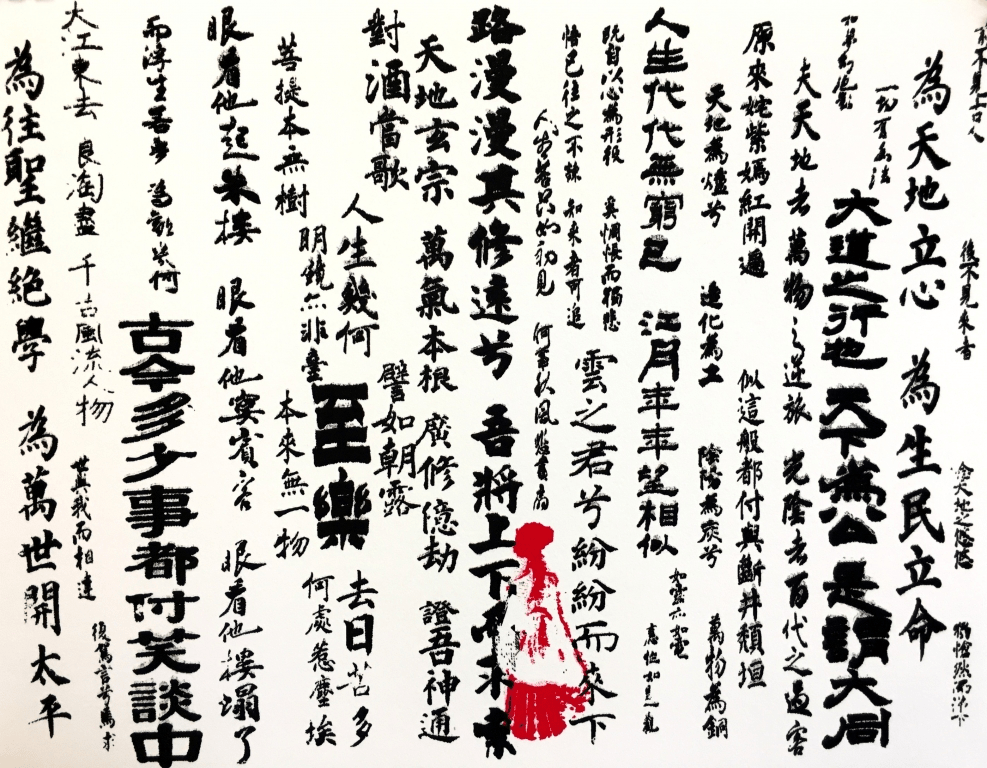 前不見古人 後不見來者 念天地之悠悠 獨愴然而涕下
為天地立心 為生民立命
一切有為法
大道之行也 天下為公 是謂大同
如夢幻泡影
夫天地者萬物之逆旅 光陰者百代之過客
原來姹紫嫣紅開遍 似這般都付與斷井頹垣
天地為爐兮 造化為工 陰陽為炭兮 萬物為銅
人生代代無窮已 江月年年望相似
如露亦如電 應作如是觀
既自以心為形役 奚惆悵而獨悲
悟已往之不諫 知來者可追
雲之君兮紛紛而來下
人生若只如初見 何事秋風悲畫扇
路漫漫其修遠兮 吾將上下而求索
天地玄宗 萬氣本根 廣修億劫 證吾神通
對酒當歌
人生幾何
譬如朝露
去日苦多
至樂
菩提本無樹
明鏡亦非臺
本來無一物
何處惹塵埃
眼看他起朱樓 眼看他宴賓客 眼看他樓塌了
而浮生若夢 為歡幾何
古今多少事都付笑談中
大江東去 浪淘盡 千古風流人物
世與我而相違 復駕言兮焉求
為往聖繼絕學 為萬世開太平